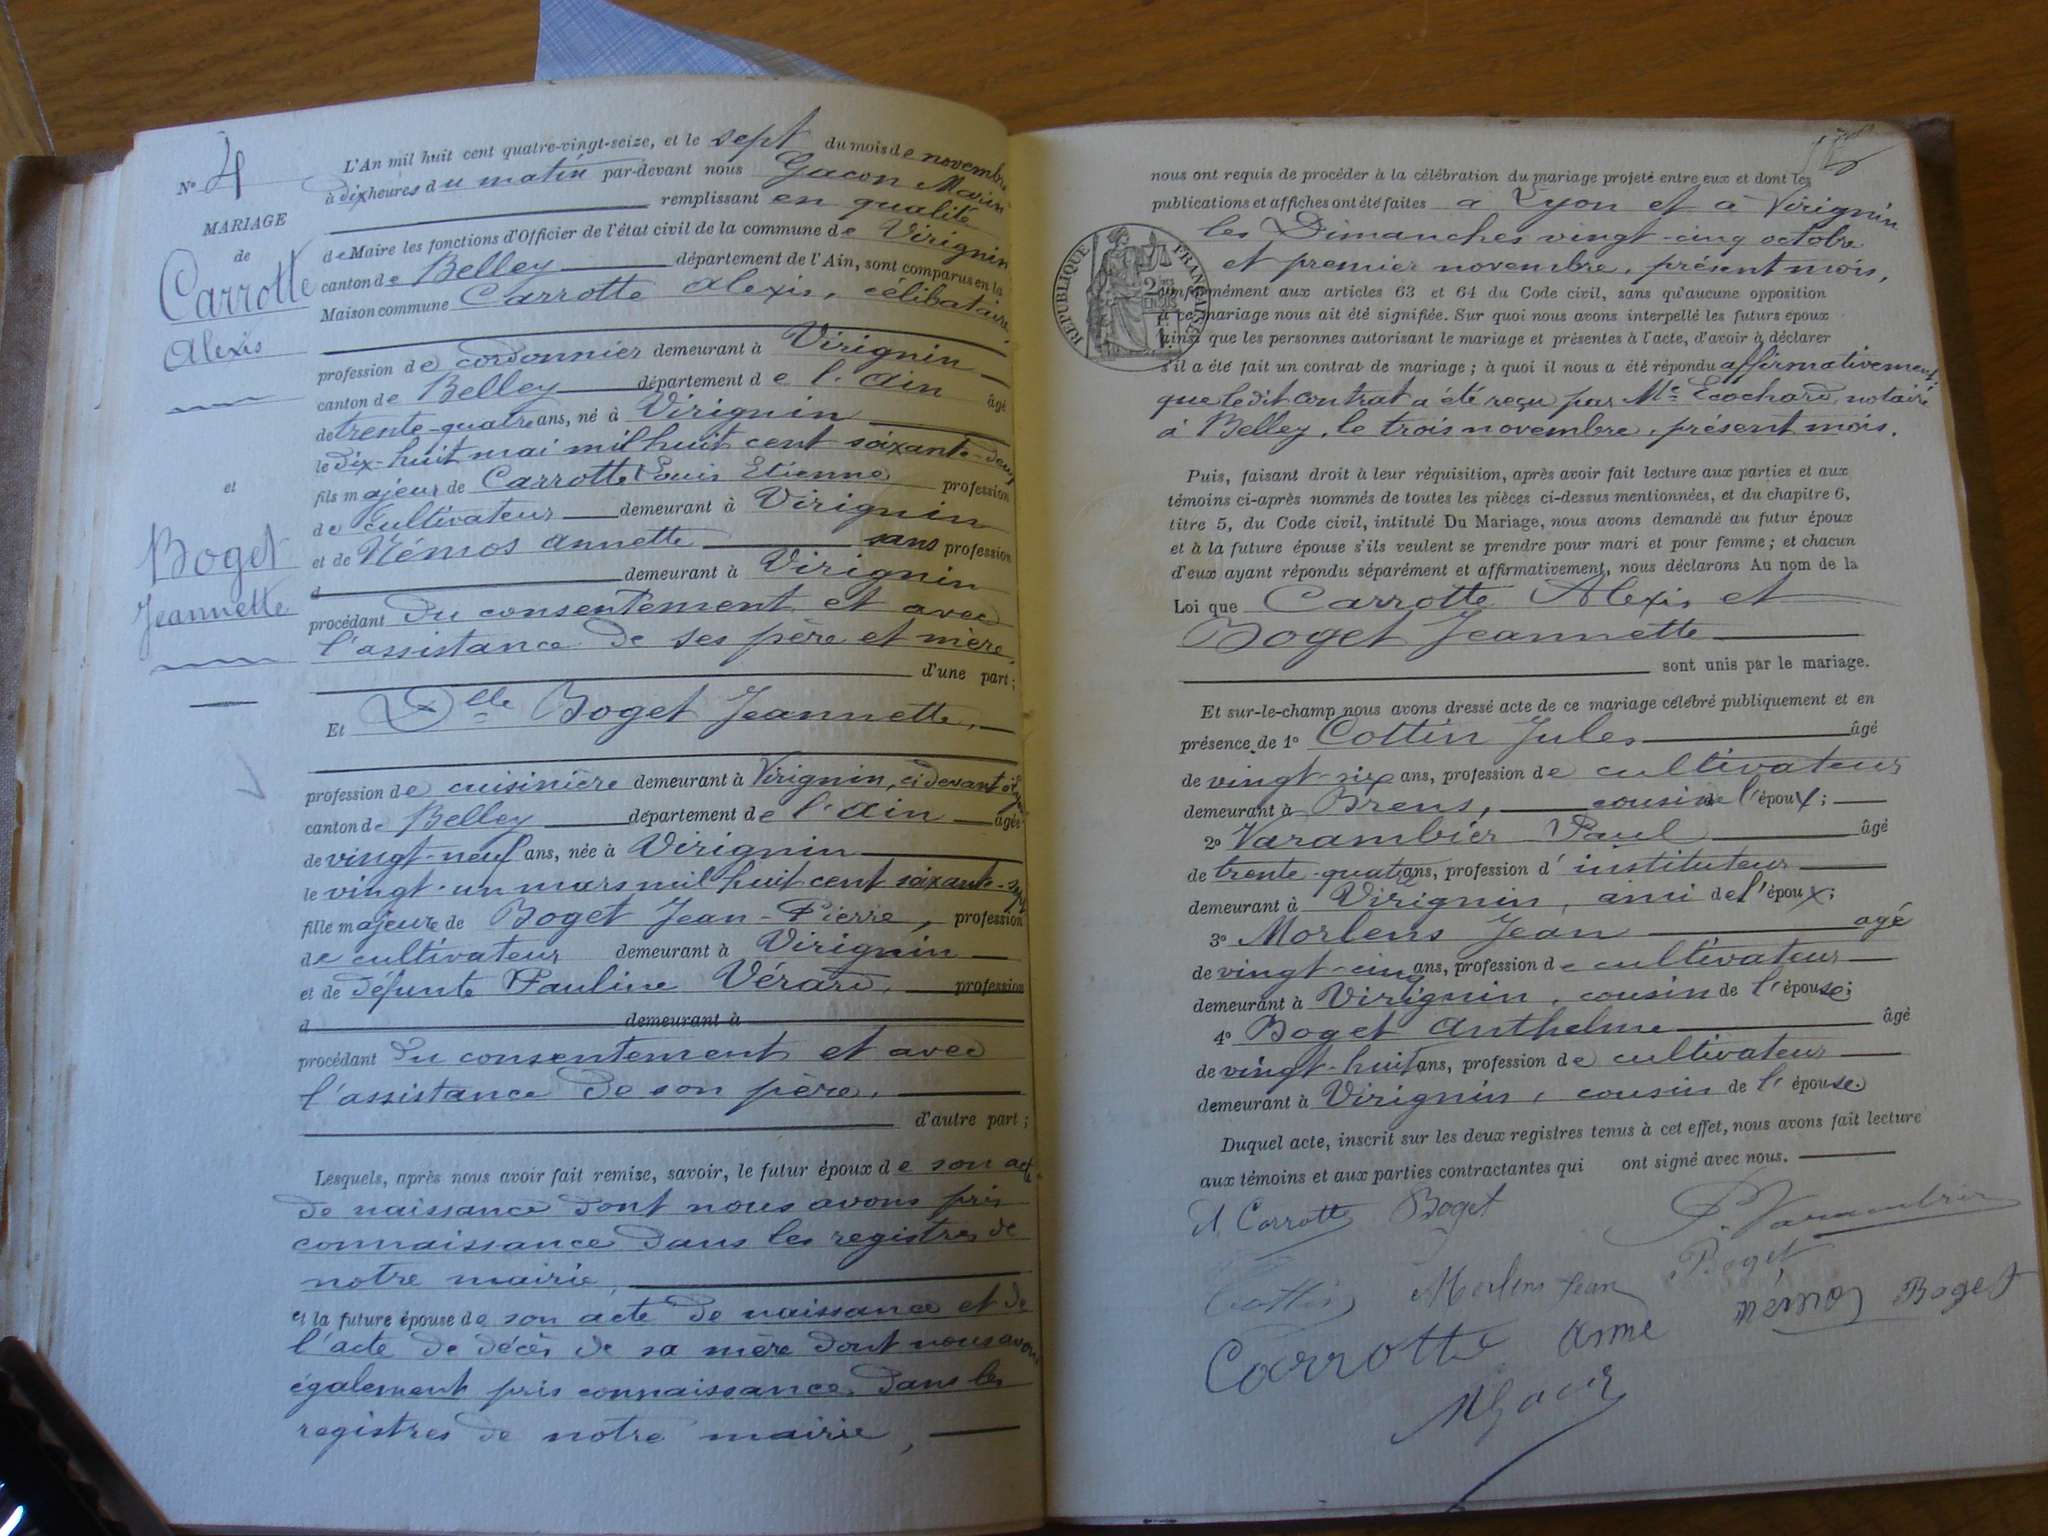 N° 4
MARIAGE
de
Carrotte
Alexis
et
Boget
Jeannette
L'An mil huit cent quatre-vingt-seize, et le sept du mois de novembre
à dix heures du matin par-devant nous Gacon Marin
remplissant en qualité
de Maire les fonctions d'Officier de l'état civil de la commune de Virignin
canton de Belley département de l'Ain, sont comparus en la
Maison commune Carrotte Alexis, célibataire
profession de cordonnier demeurant à Virignin
canton de Belley département de l'Ain âgé
de trente-quatre ans, né à Virignin
le dix-huit mai mil huit cent soixante-deux
fils majeur de Carrotte Louis Etienne profession
de cultivateur demeurant à Virignin
et de Némos Annette sans profession
d demeurant à Virignin
procédant du consentement et avec
l'assistance de ses père et mère,
d'une part;
Et Dlle Boget Jeannette,
profession de cuisinière demeurant à Virignin, ci devant à Lyon
canton de Belley département de l'Ain âgée
de vingt-neuf ans, née à Virignin
le vingt-un mars mil huit cent soixante-sept
fille majeure de Boget Jean-Pierre, profession
de cultivateur demeurant à Virignin
et de défunte Pauline Vérard, profession
d demeurant à
procédant du consentement et avec
l'assistance de son père,
d'autre part;
Lesquels, après nous avoir fait remise, savoir, le futur époux de son acte
de naissance dont nous avons pris
connaissance dans les registres de
notre mairie,
et la future épouse de son acte de naissance et de
l'acte de décès de sa mère dont nous avons
également pris connaissance dans les
registres de notre mairie,
nous ont requis de procéder à la célébration du mariage projeté entre eux et dont les
publications et affiches ont été faites à Lyon et à Virignin
les Dimanches vingt-cinq octobre
et premier novembre, présent mois,
RÉPUBLIQUE FRANÇAISE
conformément aux articles 63 et 64 du Code civil, sans qu'aucune opposition
à ce mariage nous ait été signifiée. Sur quoi nous avons interpellé les futurs époux
ainsi que les personnes autorisant le mariage et présentes à l'acte, d'avoir à déclarer
s'il a été fait un contrat de mariage; à quoi il nous a été répondu affirmativement
que ledit contrat a été reçu par Me Ecochard, notaire
à Belley, le trois novembre, présent mois.
Puis, faisant droit à leur réquisition, après avoir fait lecture aux parties et aux
témoins ci-après nommés de toutes les pièces ci-dessus mentionnées, et du chapitre 6,
titre 5, du Code civil, intitulé Du Mariage, nous avons demandé au futur époux
et à la future épouse s'ils veulent se prendre pour mari et pour femme; et chacun
d'eux ayant répondu séparément et affirmativement, nous déclarons Au nom de la
Loi que Carrotte Alexis et
Boget Jeannette
sont unis par le mariage.
Et sur-le-champ nous avons dressé acte de ce mariage célébré publiquement et en
présence de 1° Cottin Jules âgé
de vingt-six ans, profession de cultivateur
demeurant à Brens, cousin de l'époux;
2° Varambier Paul âgé
de trente-quatre ans, profession d'instituteur
demeurant à Virignin, ami de l'époux;
3° Morlens Jean agé
de vingt-cinq ans, profession de cultivateur
demeurant à Virignin, cousin de l'épouse;
4° Boget Anthelme âgé
de vingt-huit ans, profession de cultivateur
demeurant à Virignin, cousin de l'épouse.
Duquel acte, inscrit sur les deux registres tenus à cet effet, nous avons fait lecture
aux témoins et aux parties contractantes qui ont signé avec nous.
A. Carrotte Boget P. Varambier
Cottin Morlens Jean Boget
Carrotte Némos Boget
MGacon